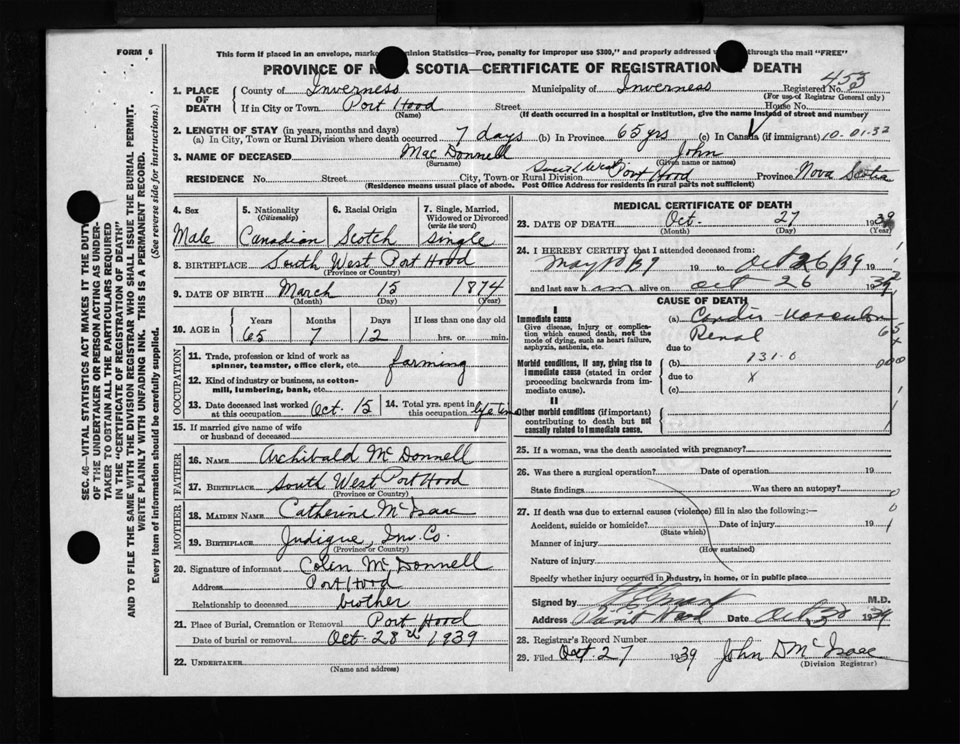 FORM 6
This form if placed in an envelope, marked Dominion Statistics—Free, penalty for improper use $300," and properly addressed through the mail "FREE"
PROVINCE OF NOVA SCOTIA—CERTIFICATE OF REGISTRATION OF DEATH
453
1. PLACE OF DEATH County of Inverness Municipality of Inverness Registered No.
(For use of Registrar General only)
If in City or Town Port Hood Street House No.
(Name) (If death occurred in a hospital or institution, give the name instead of street and number)
2. LENGTH OF STAY (in years, months and days)
(a) In City, Town or Rural Division where death occurred 7 days (b) In Province 65 yrs (c) In Canada (if immigrant) 10-01-32
3. NAME OF DECEASED Mac Donnell John
(Surname) (Given name or names)
RESIDENCE No. Street City, Town or Rural Division South West Port Hood Province Nova Scotia
(Residence means usual place of abode. Post Office Address for residents in rural parts not sufficient)
4. Sex 5. Nationality (Citizenship) 6. Racial Origin 7. Single, Married, Widowed or Divorced (write the word)
Male Canadian Scotch Single
8. BIRTHPLACE South West Port Hood
(Province or Country)
9. DATE OF BIRTH March 15 1874
(Month) (Day) (Year)
10. AGE in Years Months Days If less than one day old
65 7 12 hrs. or min.
OCCUPATION
11. Trade, profession or kind of work as spinner, teamster, office clerk, etc. farming
12. Kind of industry or business, as cotton-mill, lumbering, bank, etc.
13. Date deceased last worked at this occupation Oct. 15 14. Total yrs. spent in this occupation life time
15. If married give name of wife or husband of deceased
FATHER
16. NAME Archibald McDonnell
17. BIRTHPLACE South West Port Hood
(Province or Country)
MOTHER
18. MAIDEN NAME Catherine McIsaac
19. BIRTHPLACE Judique, Inv. Co.
(Province or Country)
20. Signature of informant Colin McDonnell
Address Port Hood
Relationship to deceased brother
21. Place of Burial, Cremation or Removal Port Hood
Date of burial or removal Oct. 28th 1939
22. UNDERTAKER
(Name and address)
MEDICAL CERTIFICATE OF DEATH
23. DATE OF DEATH Oct. 27 1939
(Month) (Day) (Year)
24. I HEREBY CERTIFY that I attended deceased from:
May 10/39 19 to Oct 26/39 19
and last saw h im alive on Oct 26 1939
CAUSE OF DEATH
I
Immediate cause (a) Cardio-vascular
Give disease, injury or complication which caused death, not the mode of dying, such as heart failure, asphyxia, asthenia, etc. Renal
due to
Morbid conditions, if any, giving rise to immediate cause (stated in order proceeding backwards from immediate cause). (b) 131-0
due to x
(c)
II
Other morbid conditions (if important) contributing to death but not causally related to immediate cause.
25. If a woman, was the death associated with pregnancy?
26. Was there a surgical operation? Date of operation 19
State findings Was there an autopsy?
27. If death was due to external causes (violence) fill in also the following:—
Accident, suicide or homicide? Date of injury 19
(State which)
Manner of injury
(How sustained)
Nature of injury
Specify whether injury occurred in industry, in home, or in public place
Signed by M.D.
Address Port Hood Date Oct 1939
28. Registrar's Record Number
29. Filed Oct 27 1939 John D McIsaac
(Division Registrar)
SEC. 46—VITAL STATISTICS ACT MAKES IT THE DUTY OF THE UNDERTAKER OR PERSON ACTING AS UNDERTAKER TO OBTAIN ALL THE PARTICULARS REQUIRED IN THE "CERTIFICATE OF REGISTRATION OF DEATH"
AND TO FILE THE SAME WITH THE DIVISION REGISTRAR WHO SHALL ISSUE THE BURIAL PERMIT.
WRITE PLAINLY WITH UNFADING INK. THIS IS A PERMANENT RECORD.
Every item of information should be carefully supplied. (See reverse side for instructions.)